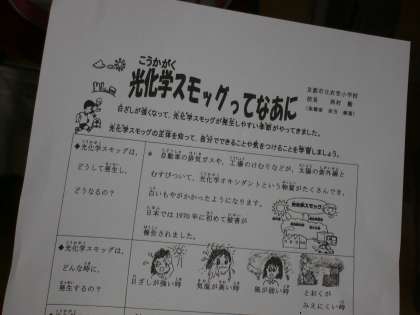 こうかがく
光化学スモッグってなあに
日ざしが強くなって、光化学スモッグが発生しやすい季節がやってきました。
光化学スモッグの正体を知って、自分でできることや気をつけることを学習しましょう。
◆光化学スモッグは、
どうして発生し、
どうなるの？
自動車の排気ガスや、工場のけむりなどが、太陽の紫外線と
むすびついて、光化学オキシダントという物質がたくさんでき、
白いもやがかかったようになります。
日本では1970年に初めて被害が
報告されました。
光化学スモッグ
◆光化学スモッグは、
どんな時に、
発生するの？
日ざしが強い時
気温が高い時
風が弱い時
とおくが
みえにくい時